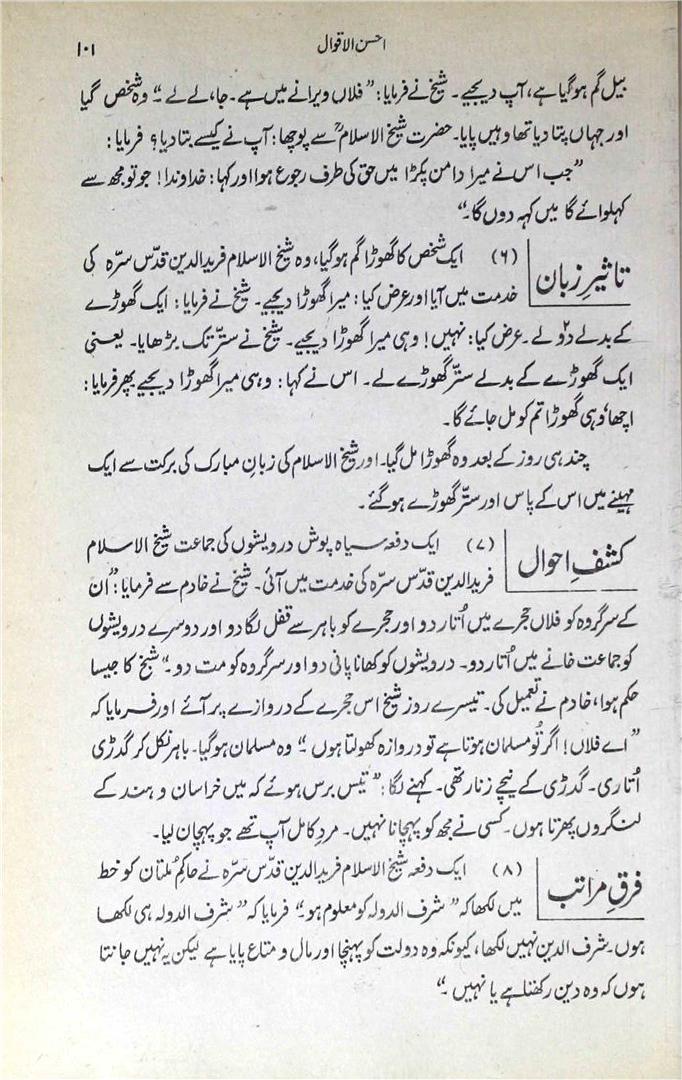 احسن الاقوال
۱۰۱
بیل گم ہوگیا ہے، آپ دیجیے۔ شیخ نے فرمایا: "فلاں ویرانے میں ہے۔ جا، لے لے۔" وہ شخص گیا
اور جہاں پتا دیا تھا وہیں پایا۔ حضرت شیخ الاسلامؒ سے پوچھا: آپ نے کیسے بتا دیا؟ فرمایا:
"جب اس نے میرا دامن پکڑا میں حق کی طرف رجوع ہوا اور کہا: خداوندا! جو تو مجھ سے
کہلوائے گا میں کہہ دوں گا۔"
تاثیرِ زبان
(۶) ایک شخص کا گھوڑا گم ہوگیا، وہ شیخ الاسلام فریدالدین قدّس سرہ کی
خدمت میں آیا اور عرض کیا: میرا گھوڑا دیجیے۔ شیخ نے فرمایا: ایک گھوڑے
کے بدلے دو لے۔ عرض کیا: نہیں! وہی میرا گھوڑا دیجیے۔ شیخ نے ستّر تک بڑھایا۔ یعنی
ایک گھوڑے کے بدلے ستّر گھوڑے لے۔ اس نے کہا: وہی میرا گھوڑا دیجیے پھر فرمایا:
اچھا وہی گھوڑا تم کو مل جائے گا۔
چند ہی روز کے بعد وہ گھوڑا مل گیا۔ اور شیخ الاسلام کی زبانِ مبارک کی برکت سے ایک
مہینے میں اس کے پاس اور ستّر گھوڑے ہوگئے۔
کشفِ احوال
(۷) ایک دفعہ سیاہ پوش درویشوں کی جماعت شیخ الاسلام
فریدالدین قدّس سرّہ کی خدمت میں آئی۔ شیخ نے خادم سے فرمایا: "ان
کے سرگروہ کو فلاں حجرے میں اُتار دو اور حجرے کو باہر سے قفل لگا دو اور دوسرے درویشوں
کو جماعت خانے میں اُتار دو۔ درویشوں کو کھانا پانی دو اور سرگروہ کو مت دو۔" شیخ کا جیسا
حکم ہوا، خادم نے تعمیل کی۔ تیسرے روز شیخ اس حجرے کے دروازے پر آئے اور فرمایا کہ
"اے فلاں! اگر تُو مسلمان ہوتا ہے تو دروازہ کھولتا ہوں۔" وہ مسلمان ہوگیا۔ باہر نکل کر گدڑی
اُتاری۔ گدڑی کے نیچے زنار تھی۔ کہنے لگا: "تیس برس ہوئے کہ میں خراسان و ہند کے
لنگروں پھرتا ہوں۔ کسی نے مجھ کو پہچانا نہیں۔ مردِ کامل آپ تھے جو پہچان لیا۔
فرقِ مراتب
(۸) ایک دفعہ شیخ الاسلام فریدالدین قدّس سرّہ نے حاکمِ ملتان کو خط
میں لکھا کہ "شرف الدولہ کو معلوم ہو۔" فرمایا کہ "شرف الدولہ ہی لکھا
ہوں۔ شرف الدین نہیں لکھا، کیونکہ وہ دولت کو پہنچا اور مال و متاع پایا ہے لیکن یہ نہیں جانتا
ہوں کہ وہ دین رکھتا ہے یا نہیں۔"